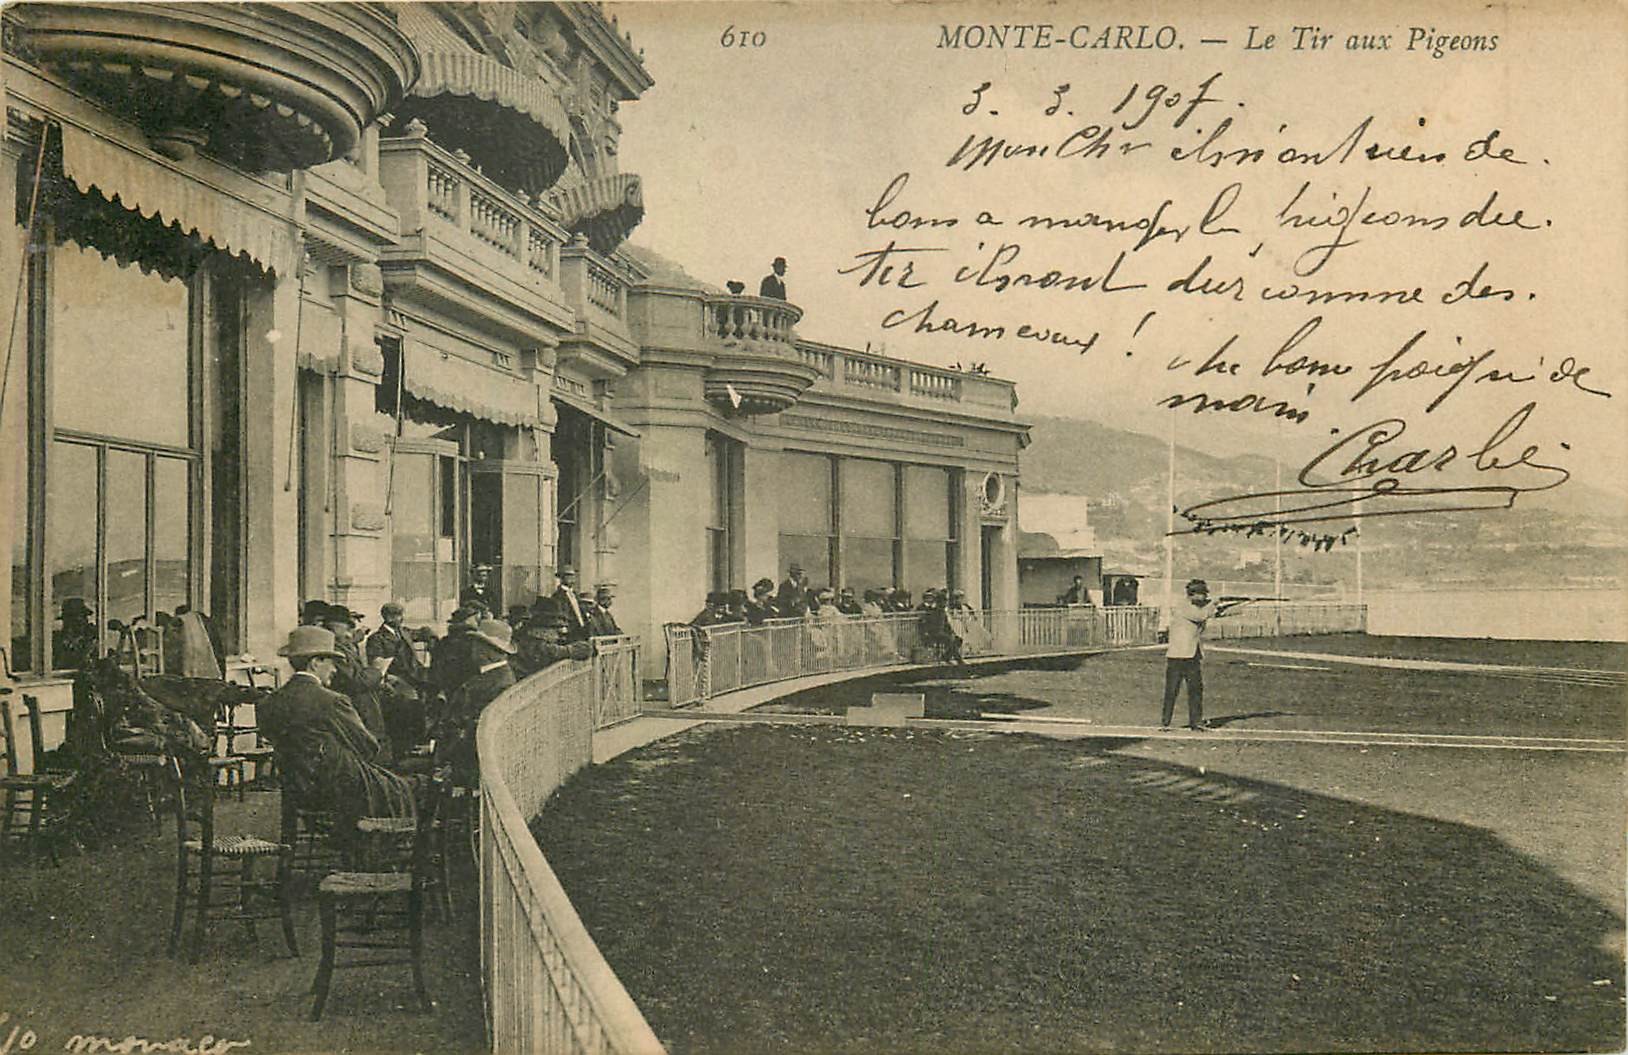 610 MONTE-CARLO. — Le Tir aux Pigeons
3. 3. 1907.
Mon Cher ils n'ont rien de
bons a manger les pigeons du
Tir ils sont dur comme des
chameaux !
Une bonne poignée de
main.
Charles
10 monaco